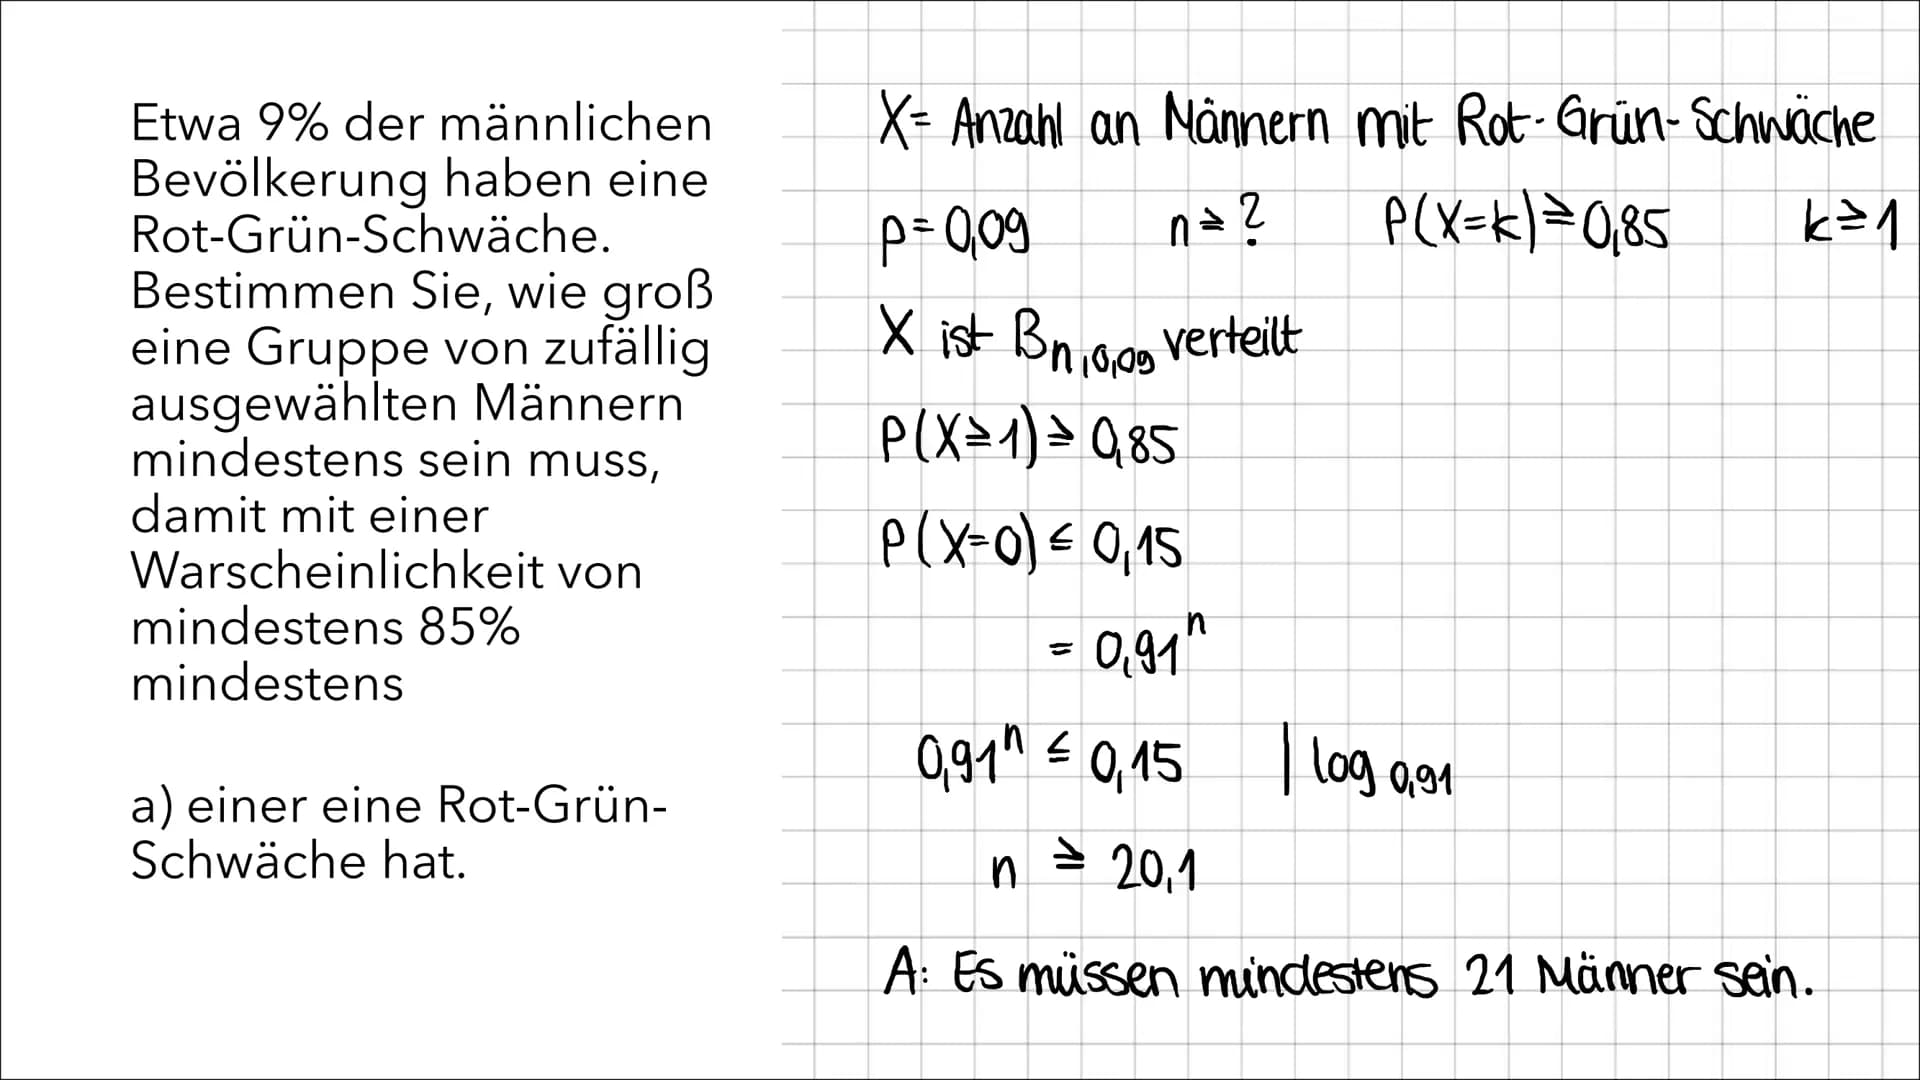 Etwa 9% der männlichen
Bevölkerung haben eine
Rot-Grün-Schwäche.
Bestimmen Sie, wie groß
eine Gruppe von zufällig
ausgewählten Männern
mindestens sein muss,
damit mit einer
Warscheinlichkeit von
mindestens 85%
mindestens
a) einer eine Rot-Grün-
Schwäche hat.
X= Anzahl an Männern mit Rot-Grün-Schwäche
p=0,09 n≥? P(X=k)≥0,85 k≥1
X ist Bn,0,09 verteilt
P(X≥1)≥0,85
P(X=0)≤0,15
= 0,91ⁿ
0,91ⁿ ≤ 0,15 | log 0,91
n ≥ 20,1
A: Es müssen mindestens 21 Männer sein.